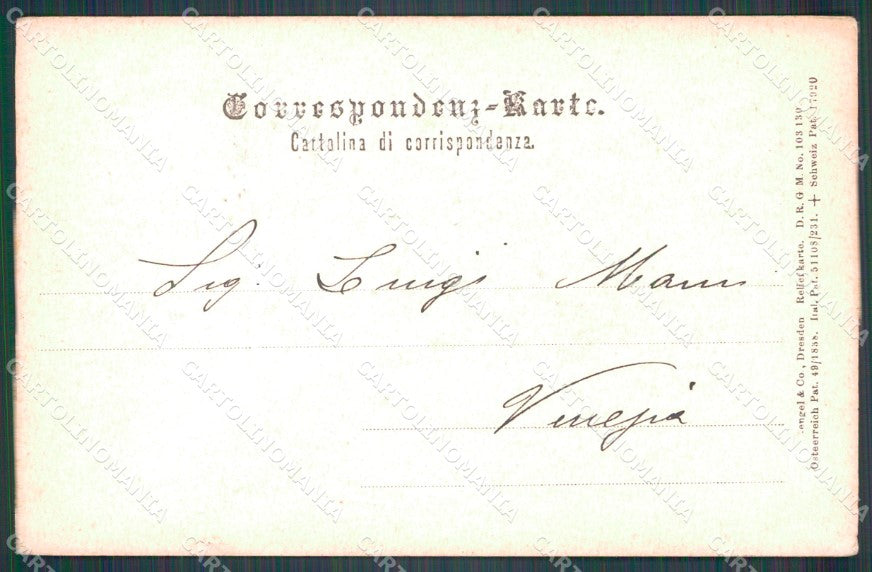 Correspondenz-Karte.
Cartolina di corrispondenza.
Sig. Luigi
Venezia
Stengel & Co., Dresden Reliefkarte. D. R. G. M. No. 103 130
Österreich Pat. 49/1858. Ital. Pat. 51108/231. + Schweiz Pat. 17990
CARTOLINOMANIA